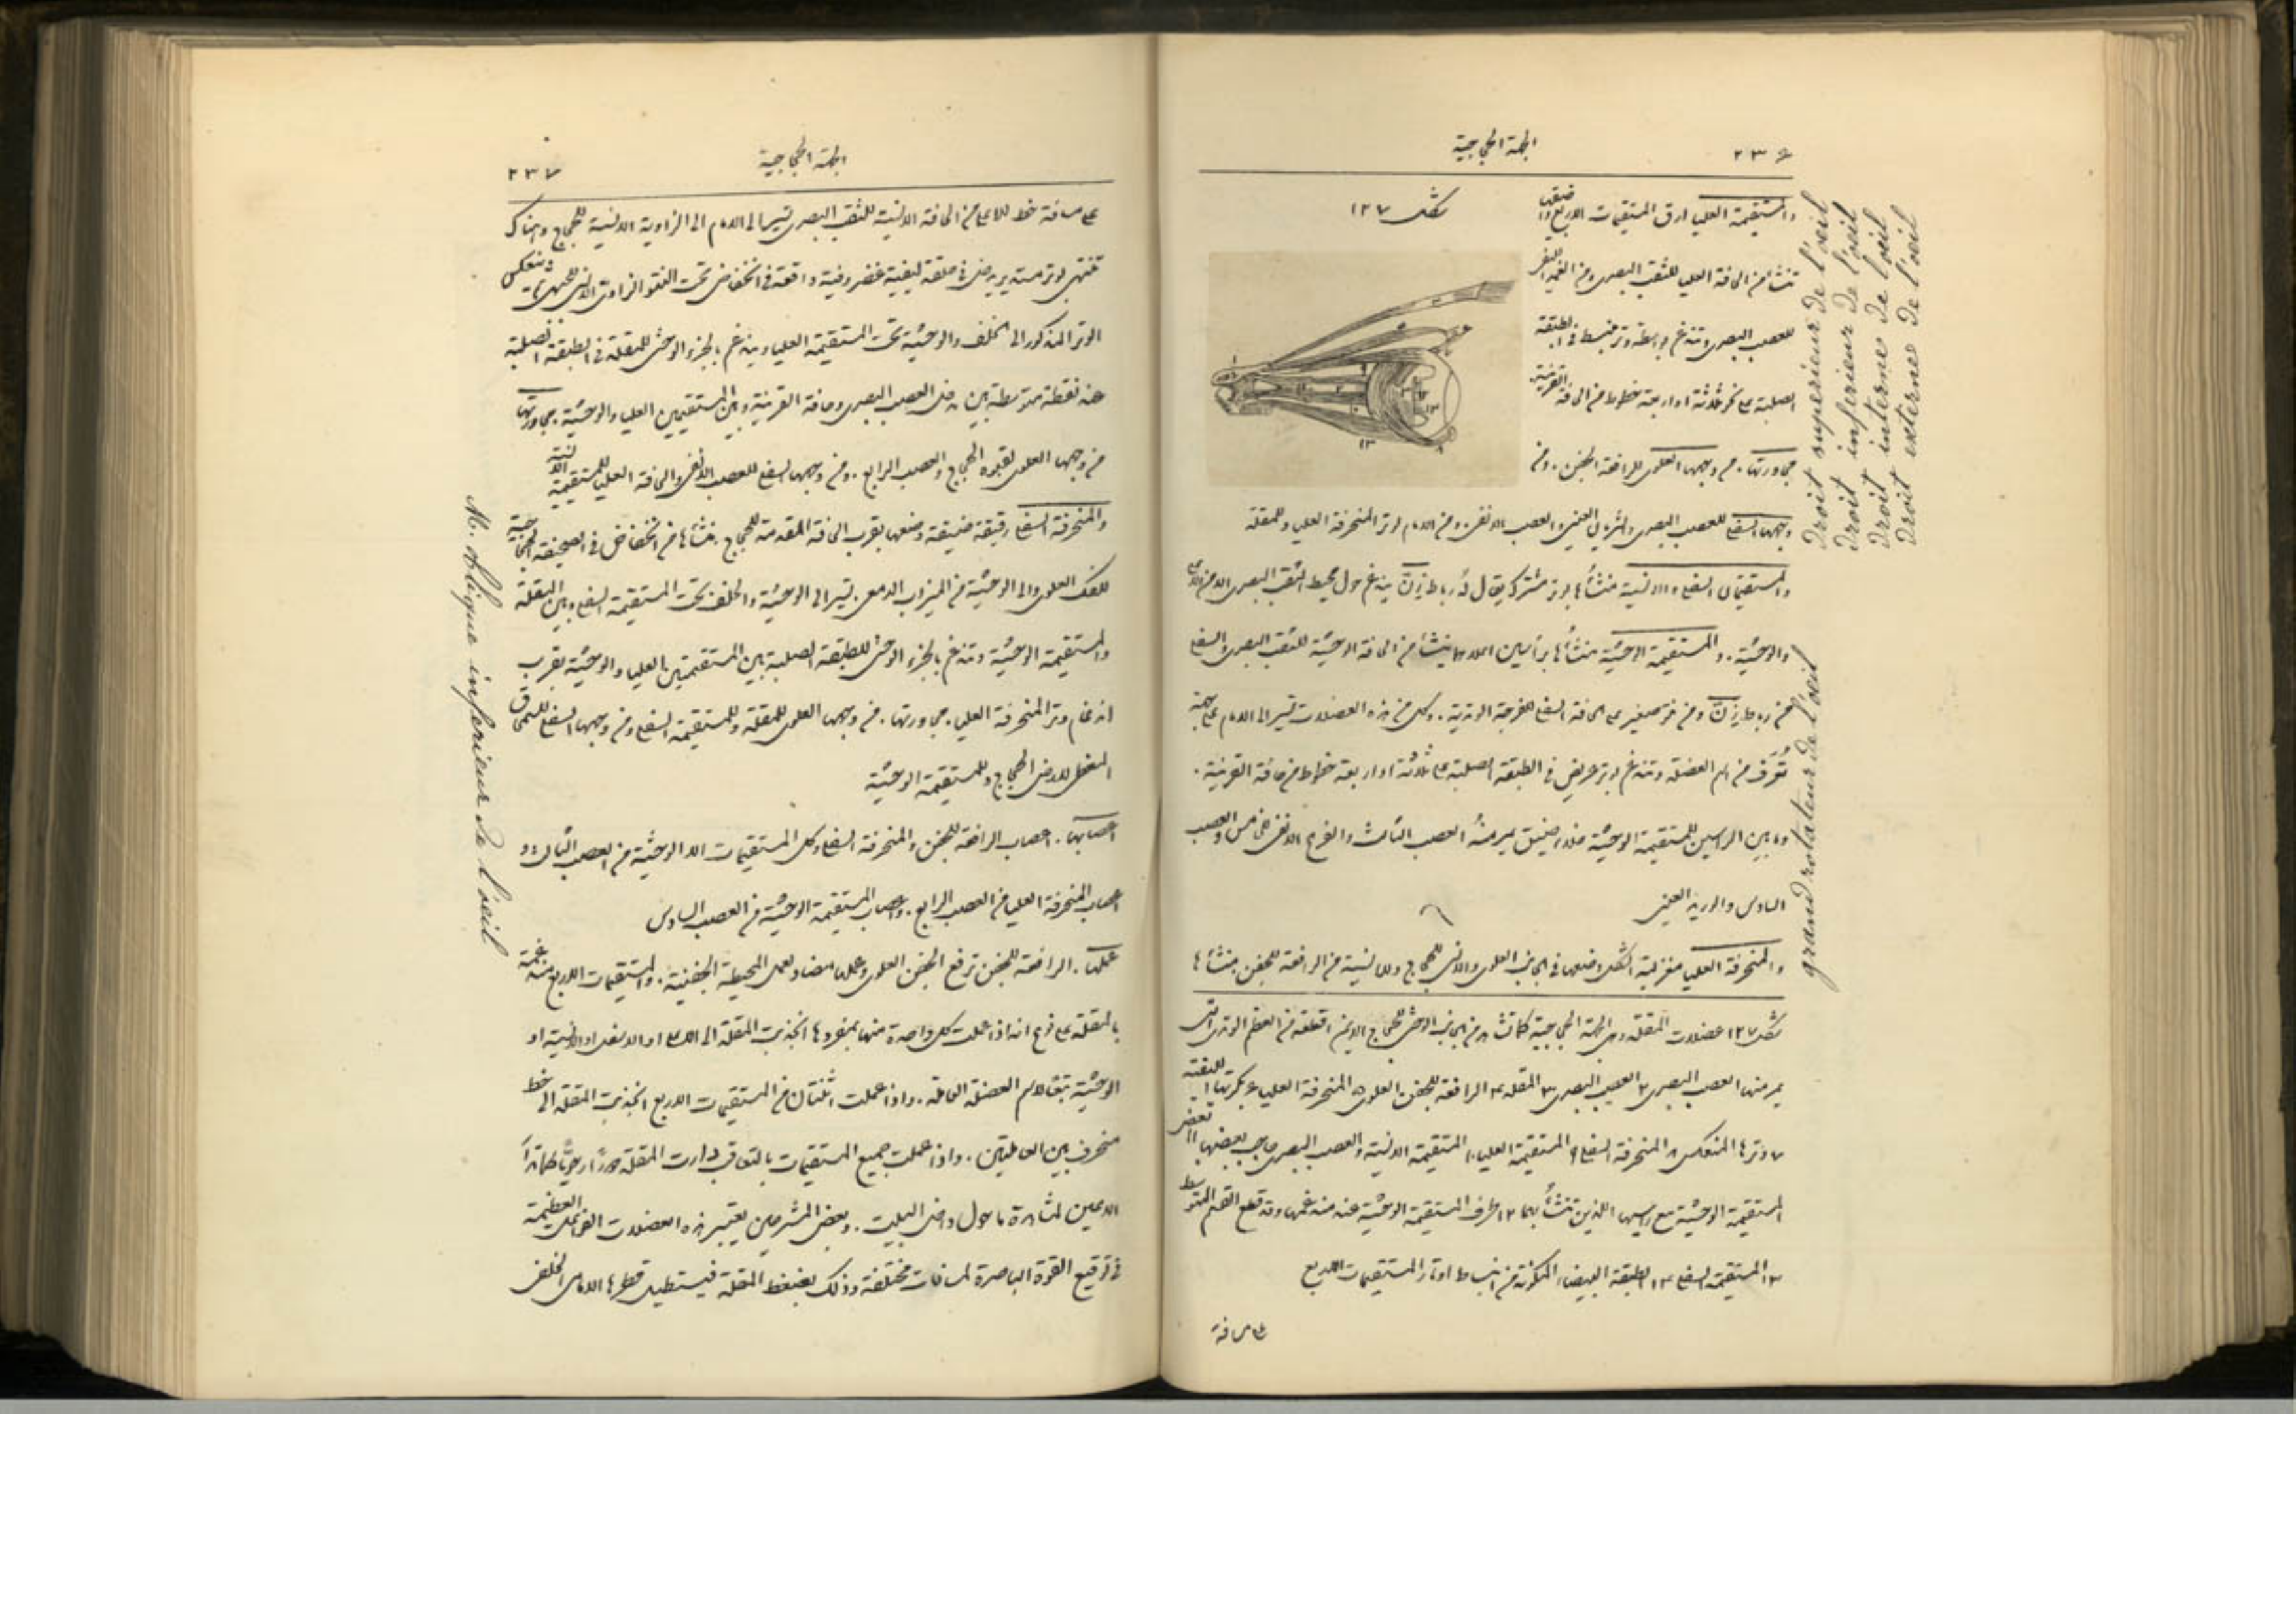 ٢٣٦ الجملة الحجاجية
شكل ١٣٧
والمستقيمة العليا ارق المستقيمات الاربع واضيقها
تنشأ من الحافة العليا للثقب البصري ومن الغمد الليفي
للعصب البصري وتندغم بواسطة وتر منبسط في الطبقة
الصلبة على نحو ثلاثة او اربعة خطوط من الحافة القرنية
مجاورتها. من وجهها العلوي للرافعة الجفن. ومن
وجهها السفلي للعصب البصري والشريان العيني والعصب الانفي. ومن الامام لوتر المنحرفة العليا وللمقلة
والمستقيمتان السفلى والانسية منشأها بوتر مشترك يقال له رباط زِنّ يندغم حول محيط الثقب البصري الا من الاعلى
والوحشية. والمستقيمة الوحشية منشأها برأسين احدهما ينشأ من الحافة الوحشية للثقب البصري والسفلي
من رباط زِنّ ومن نتوء صغير على الحافة السفلى للفرجة الوتدية. وكل من هذه العضلات تسير الى الامام على جهة
تُعرَف من اسم العضلة وتندغم بوتر عريض في الطبقة الصلبة على ثلاثة او اربعة خطوط من حافة القرنية.
وما بين الراسين للمستقيمة الوحشية خلاء ضيق يمر منه العصب الثالث والفرع الانفي للخامس والعصب
السادس والوريد العيني
والمنحرفة العليا مغزلية الشكل وضعها في الجانب العلوي والانسي للحجاج وللانسية من الرافعة للجفن. منشأها
شكل ١٣٧ عضلات المقلة وهي الجملة الحجاجية كما تشاهد من الجانب الوحشي للحجاج الايمن ١ قطعة من العظم الوتدي التي
يمر منها العصب البصري ٢ العصب البصري ٣ المقلة ٤ الرافعة للجفن العلوي ٥ المنحرفة العليا ٦ بكرتها الليفية
٧ وترها المنعكس ٨ المنحرفة السفلى ٩ المستقيمة العليا ١٠ المستقيمة الانسية والعصب البصري حاجب بعضها ١١ بعض
المستقيمة الوحشية مع راسيها اللذين تنشأ بهما ١٢ طرف المستقيمة الوحشية عند مندغمها وقد قطع القسم المتوسط
١٣ المستقيمة السفلى ١٤ الطبقة البيضاء المكونة من انبساط اوتار المستقيمات الاربع
على مسافة
Droit superieur de l'oeil
Droit inferieur de l'oeil
Droit interne de l'oeil
Droit externe de l'oeil
grand rotateur de l'oeil
الجملة الحجاجية ٢٣٧
على مسافة خط للاعلى من الحافة الانسية للثقب البصري تسير الى الامام الى الزاوية الانسية للحجاج وهناك
تنتهي بوتر مستدير يدخل في حلقة ليفية غضروفية واقعة في انخفاض تحت النتو الزاوي الانسي للجبهي ثم ينعكس
الوتر المذكور الى الخلف والوحشية تحت المستقيمة العليا ويندغم بالجزء الوحشي للمقلة في الطبقة الصلبة
عند نقطة متوسطة بين مدخل العصب البصري وحافة القرنية وبين المستقيمتين العليا والوحشية. مجاورتها
من وجهها العلوي لقبوة الحجاج والعصب الرابع. ومن وجهها السفلي للعصب الانفي والحافة العليا للمستقيمة الانسية
والمنحرفة السفلى رقيقة ضيقة وضعها بقرب الحافة المقدمة للحجاج. منشأها من انخفاض في الصحيفة الحجاجية
للفك العلوي والى الوحشية من الميزاب الدمعي. تسير الى الوحشية والخلف تحت المستقيمة السفلى وبين المقلة
والمستقيمة الوحشية وتندغم بالجزء الوحشي للطبقة الصلبة بين المستقيمتين العليا والوحشية بقرب
اندغام وتر المنحرفة العليا. مجاورتها. من وجهها العلوي للمقلة وللمستقيمة السفلى ومن وجهها السفلي للسمحاق
المغطي لارض الحجاج وللمستقيمة الوحشية
اعصابها. اعصاب الرافعة للجفن والمنحرفة السفلى وكل المستقيمات الا الوحشية من العصب الثالث و
اعصاب المنحرفة العليا من العصب الرابع. واعصاب المستقيمة الوحشية من العصب السادس
عملها. الرافعة للجفن ترفع الجفن العلوي وعملها مضاد لعمل المحيطة الجفنية. والمستقيمات الاربع مندغمة
بالمقلة على نوع انه اذا عملت كل واحدة منها بمفردها انجذبت المقلة الى الاعلى او الاسفل او الانسية او
الوحشية بمقتضى اسم العضلة العاملة. واذا عملت اثنتان من المستقيمات الاربع انجذبت المقلة الى خط
منحرف بين العاملتين. واذا عملت جميع المستقيمات بالتعاقب دارت المقلة دورًا رحويًّا كما تراه
الاعين لمشاهدة ما حول داخل البيت. وبعض المشرحين يعتبر هذه العضلات الفواعل العظيمة
في توقيع القوة الباصرة لمسافات مختلفة وذلك بضغط المقلة فيستطيل قطرها الامامي الخلفي
M. oblique inferieur de l'oeil